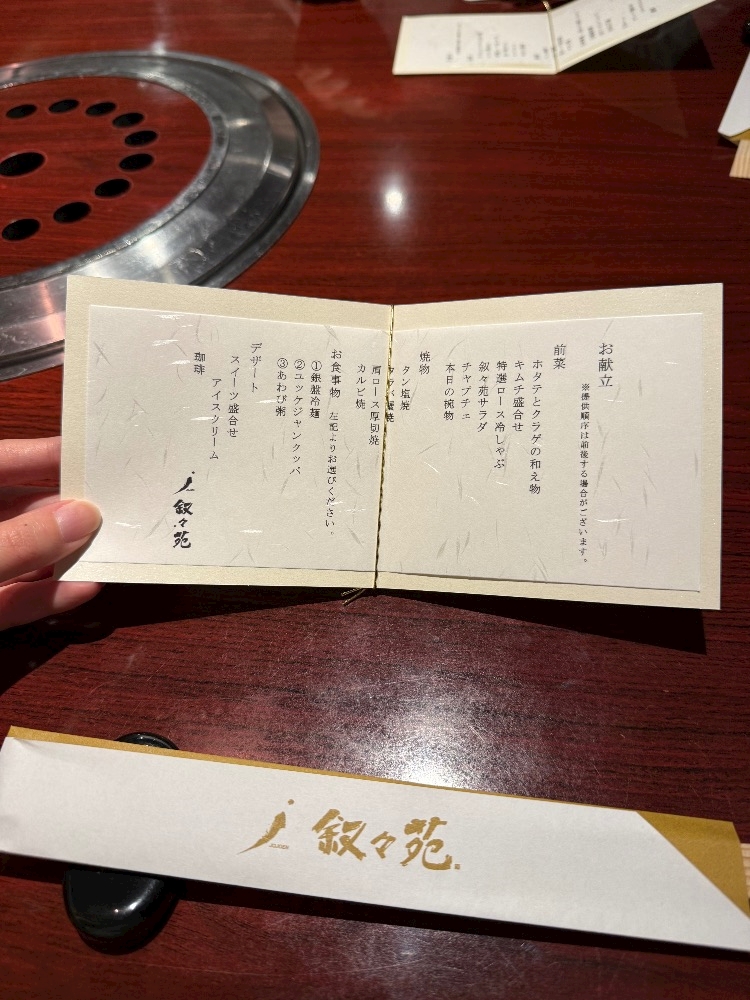 お献立
※提供順序は前後する場合がございます。
前菜
ホタテとクラゲの和え物
キムチ盛合せ
特選ロース冷しゃぶ
叙々苑サラダ
チャプチェ
本日の椀物
焼物
タン塩焼
肩ロース厚切焼
カルビ焼
お食事物 左記よりお選びください。
①銀盤冷麺
②ユッケジャンクッパ
③あわび粥
デザート
スイーツ盛合せ
アイスクリーム
珈琲
叙々苑
叙々苑